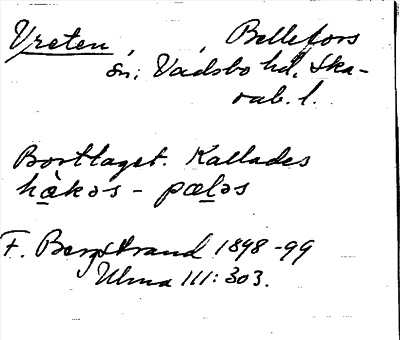 Vreten, , Bellefors
sn; Vadsbo hd, Ska-
rab. l.
Borttaget. Kallades
hàkəs - pæləs
F. Bergstrand 1898-99
Ulma 111: 303.